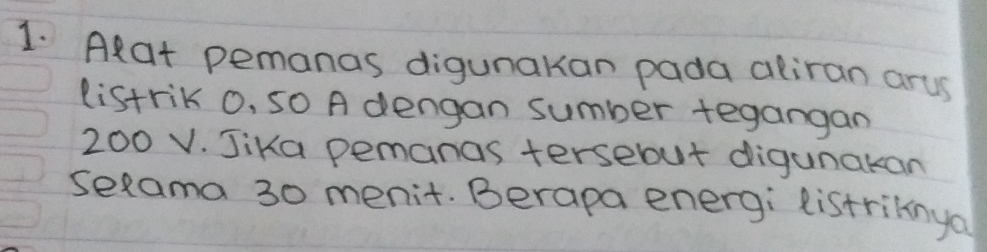 1. Alat pemanas digunakan pada aliran arus
listrik 0,50 A dengan sumber tegangan
200 V. Jika pemanas tersebut digunakan
selama 30 menit. Berapa energi listriknya